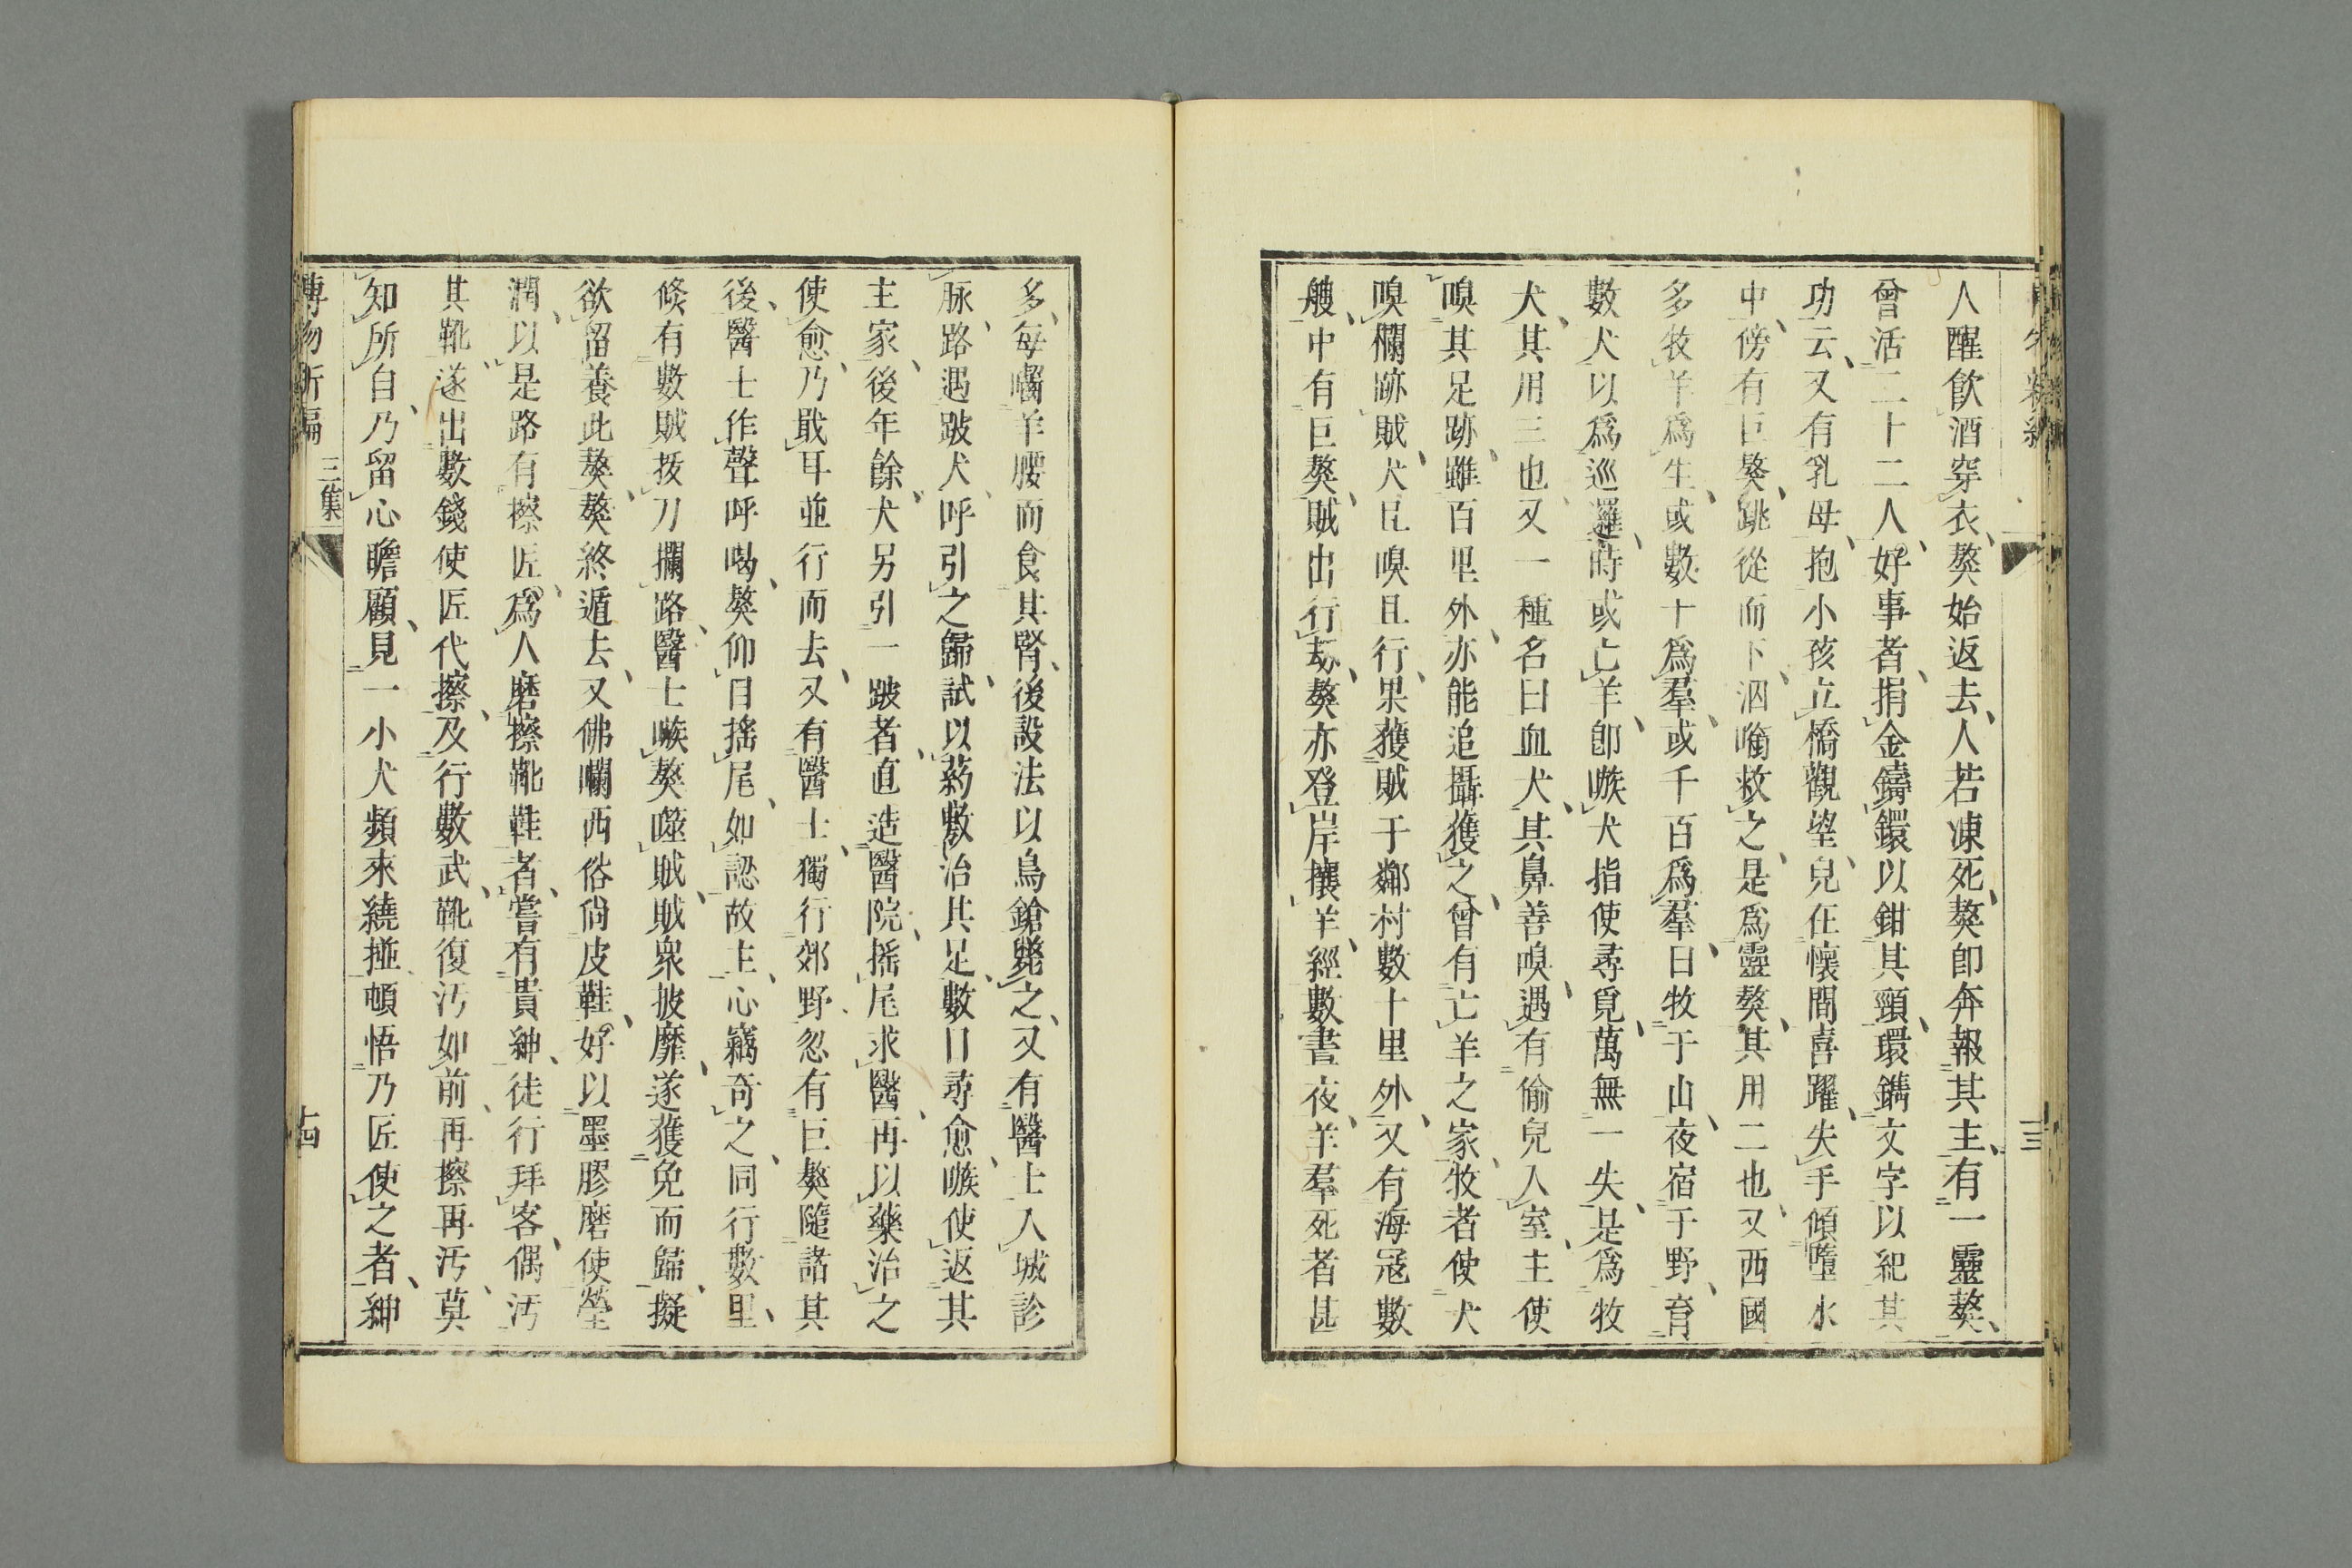 人醒飮酒穿衣、獒始返去、人若凍死、獒卽奔報其主、有一靈獒、
曾活二十二人、好事者、捐金鑄鐶以鉗其頸、環鐫文字以紀其
功云、又有乳母、抱小孩立橋觀望、兒在懷間喜躍、失手傾墮水
中、傍有巨獒、跳從而下、泅啣救之、是爲靈獒、其用二也、又西國
多牧羊爲生、或數十爲羣、或千百爲羣、日牧于山、夜宿于野、育
數犬以爲巡邏、時或亡羊、卽嗾犬指使尋覓、萬無一失、是爲牧
犬、其用三也、又一種名曰血犬、其鼻善嗅、遇有偷兒入室、主使
嗅其足跡、雖百里外、亦能追攝獲之、曾有亡羊之家、牧者使犬
嗅欄跡賊、犬且嗅且行、果獲賊于鄰村數十里外、又有海冦數
艘、中有巨獒、賊出行刼、獒亦登岸攘羊、經數晝夜、羊羣死者甚
多、每囓羊腰而食其腎、後設法以鳥鎗斃之、又有醫士入城診
脉、路遇跛犬、呼引之歸、試以葯敷治其足、數日尋愈、嗾使返其
主家、後年餘、犬另引一跛者、直造醫院、搖尾求醫、再以藥治之
使愈、乃戢耳並行而去、又有醫士、獨行郊野、忽有巨獒隨諸其
後、醫士作聲呼喝、獒仰目搖尾、如認故主、心竊奇之、同行數里、
倐有數賊拔刀攔路、醫士嗾獒噬賊、賊衆披靡、遂獲免而歸、擬
欲留養此獒、獒終遁去、又佛囒西俗尙皮鞋、好以墨膠磨使瑩
潤、以是路有擦匠、爲人磨擦靴鞋者、嘗有貴紳、徒行拜客、偶汚
其靴、遂出數錢使匠代擦、及行數武、靴復汚如前、再擦再汚、莫
知所自、乃留心瞻顧、見一小犬頻來繞挨、頓悟乃匠使之者、紳
博物新編 三集 十四